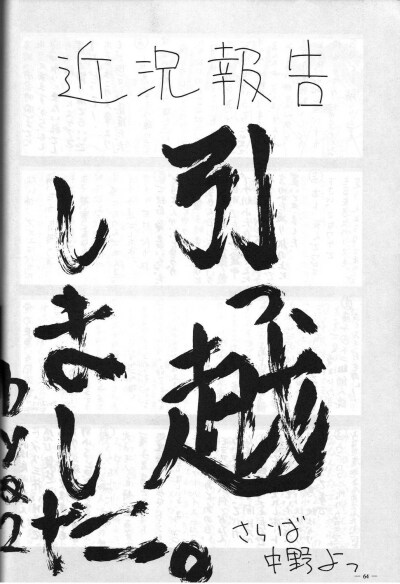 近況報告
引っ越
しました。
さらば
中野よっ
— 64 —